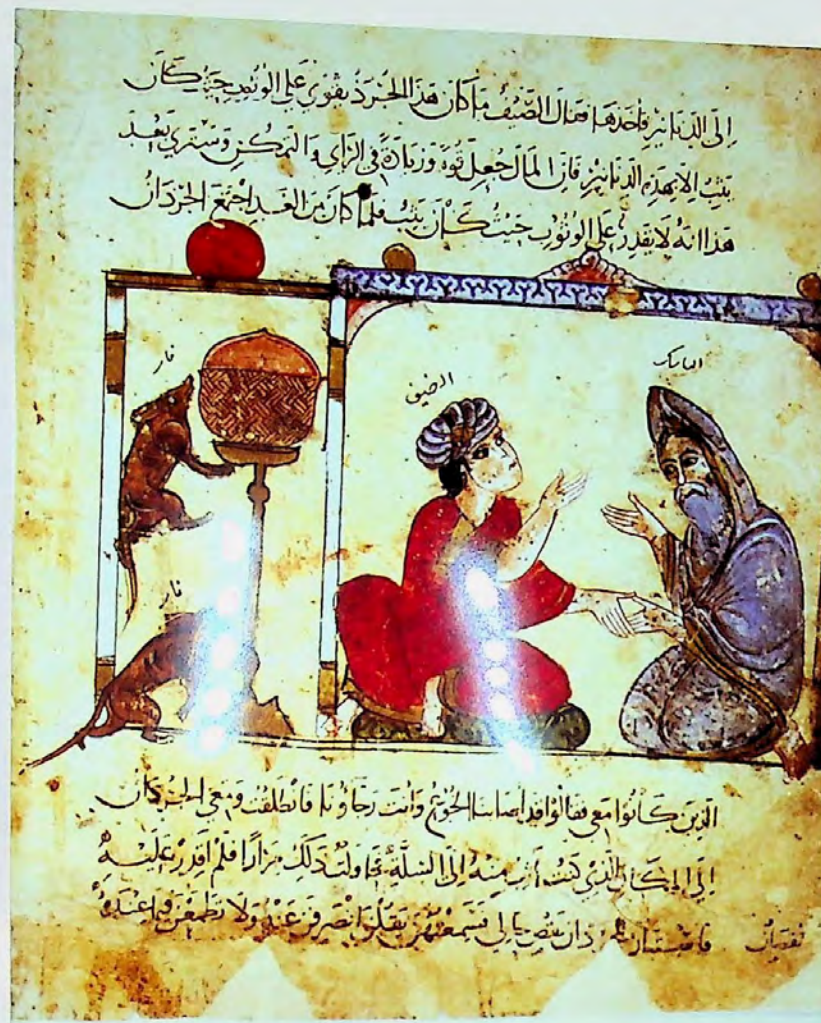 إلى الدنانير فأخذها فقال الضيف ما كان هذا الجرذ يقوى على الوثوب حيث كان
يثب إلا بهذه الدنانير فإن المال جعل قوة وزيادة في الراي والتمكن وسترى بعد
هذا انه لا يقدر على الوثوب حيث كان يثب فلما كان من الغد اجتمع الجرذان
فار
الضيف
الناسك
فار
الذين كانوا معي فقالوا قد اصابنا الجوع وانت رجاؤنا فانطلقت ومعي الجرذان
إلى المكان الذي كنت أثب منه إلى السلة فحاولت ذلك مرارا فلم اقدر عليه
فاستبان للجرذان نقص حالي فسمعتهن يقلن انصرفن عنه ولا تطمعن فيما عنده